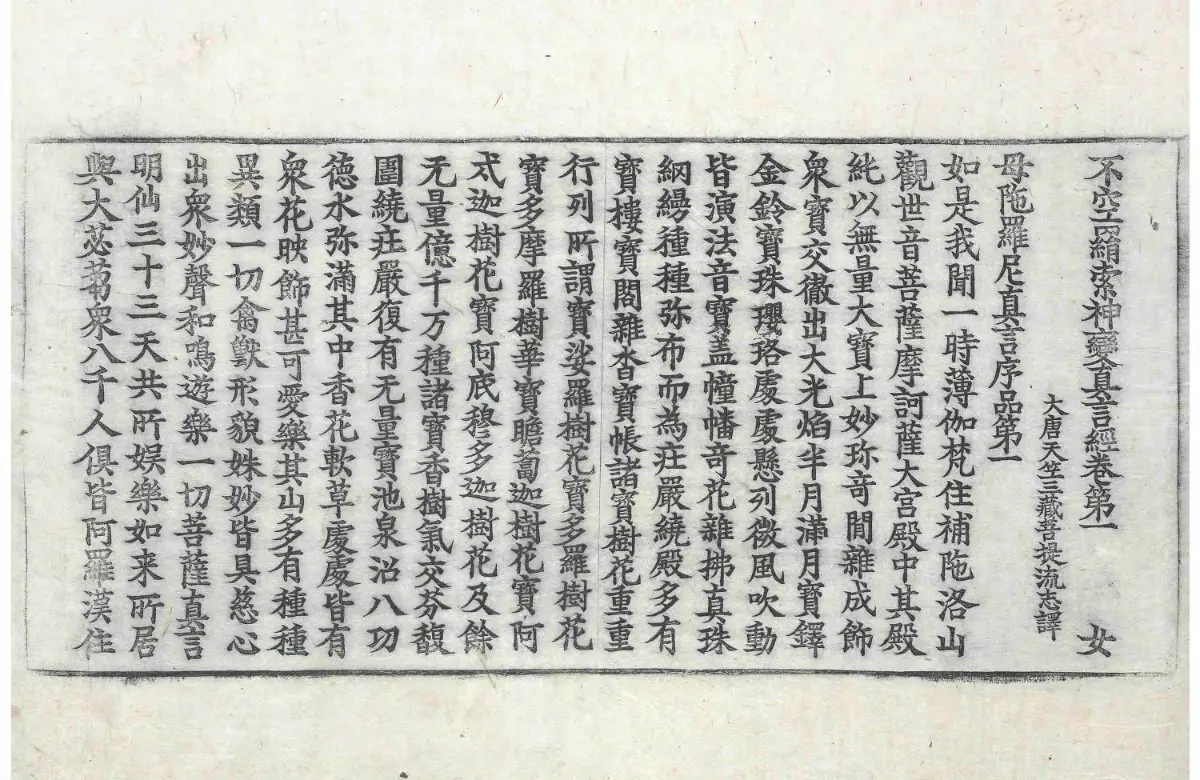 不空羂索神變真言經卷第一 女
大唐天竺三藏菩提流志譯
母陁羅尼真言序品第一
如是我聞一時薄伽梵住補陁洛山
觀世音菩薩摩訶薩大宫殿中其殿
純以無量大寶上妙珎竒間雜成飾
衆寶交徹出大光焰半月滿月寶鐸
金鈴寶珠瓔珞處處懸列微風吹動
皆演法音寶盖幢幡竒花雜拂真珠
網縵種種弥布而為莊嚴繞殿多有
寶樓寶閣雜沓寶帳諸寶樹花重重
行列所謂寶娑羅樹花寶多羅樹花
寶多摩羅樹華寶瞻蔔迦樹花寶阿
戍迦樹花寶阿底穆多迦樹花及餘
无量億千万種諸寶香樹氣交芬馥
圍繞莊嚴復有无量寶池泉沼八功
德水弥滿其中香花軟草處處皆有
衆花映飾甚可愛樂其山多有種種
異類一切禽獸形貌姝妙皆具慈心
出衆妙聲和鳴遊樂一切菩薩真言
明仙三十三天共所娛樂如来所居
與大苾芻衆八千人俱皆阿羅漢住